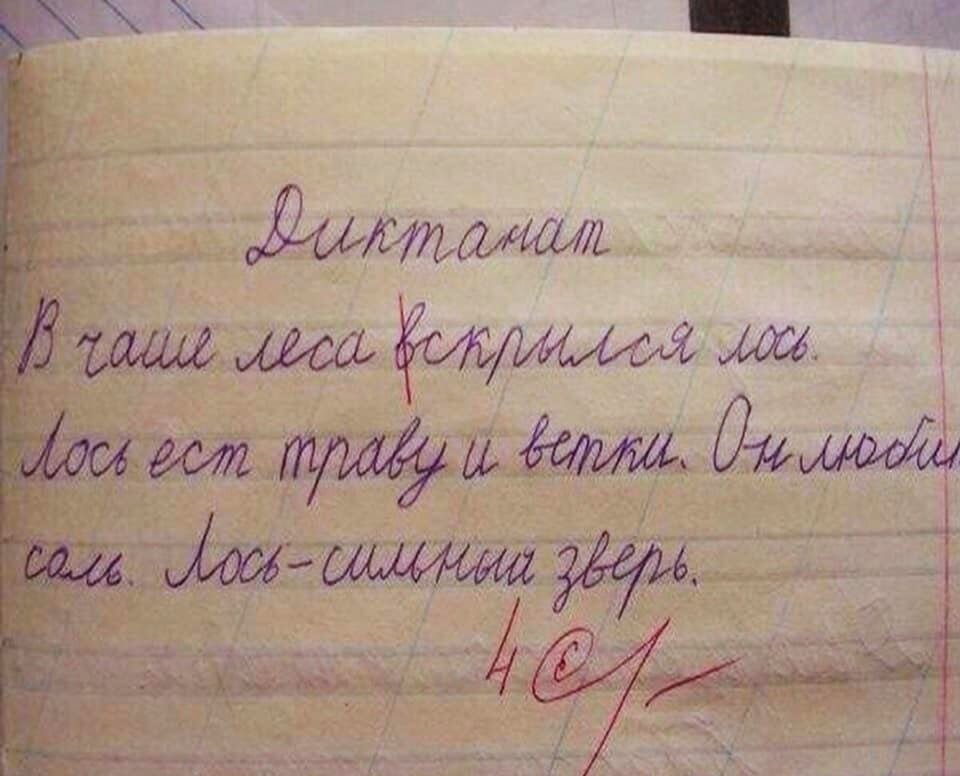 Диктанат
В чаше леса вскрылся лось.
Лось ест траву и ветки. Он любит
соль. Лось-сильный зверь.
4